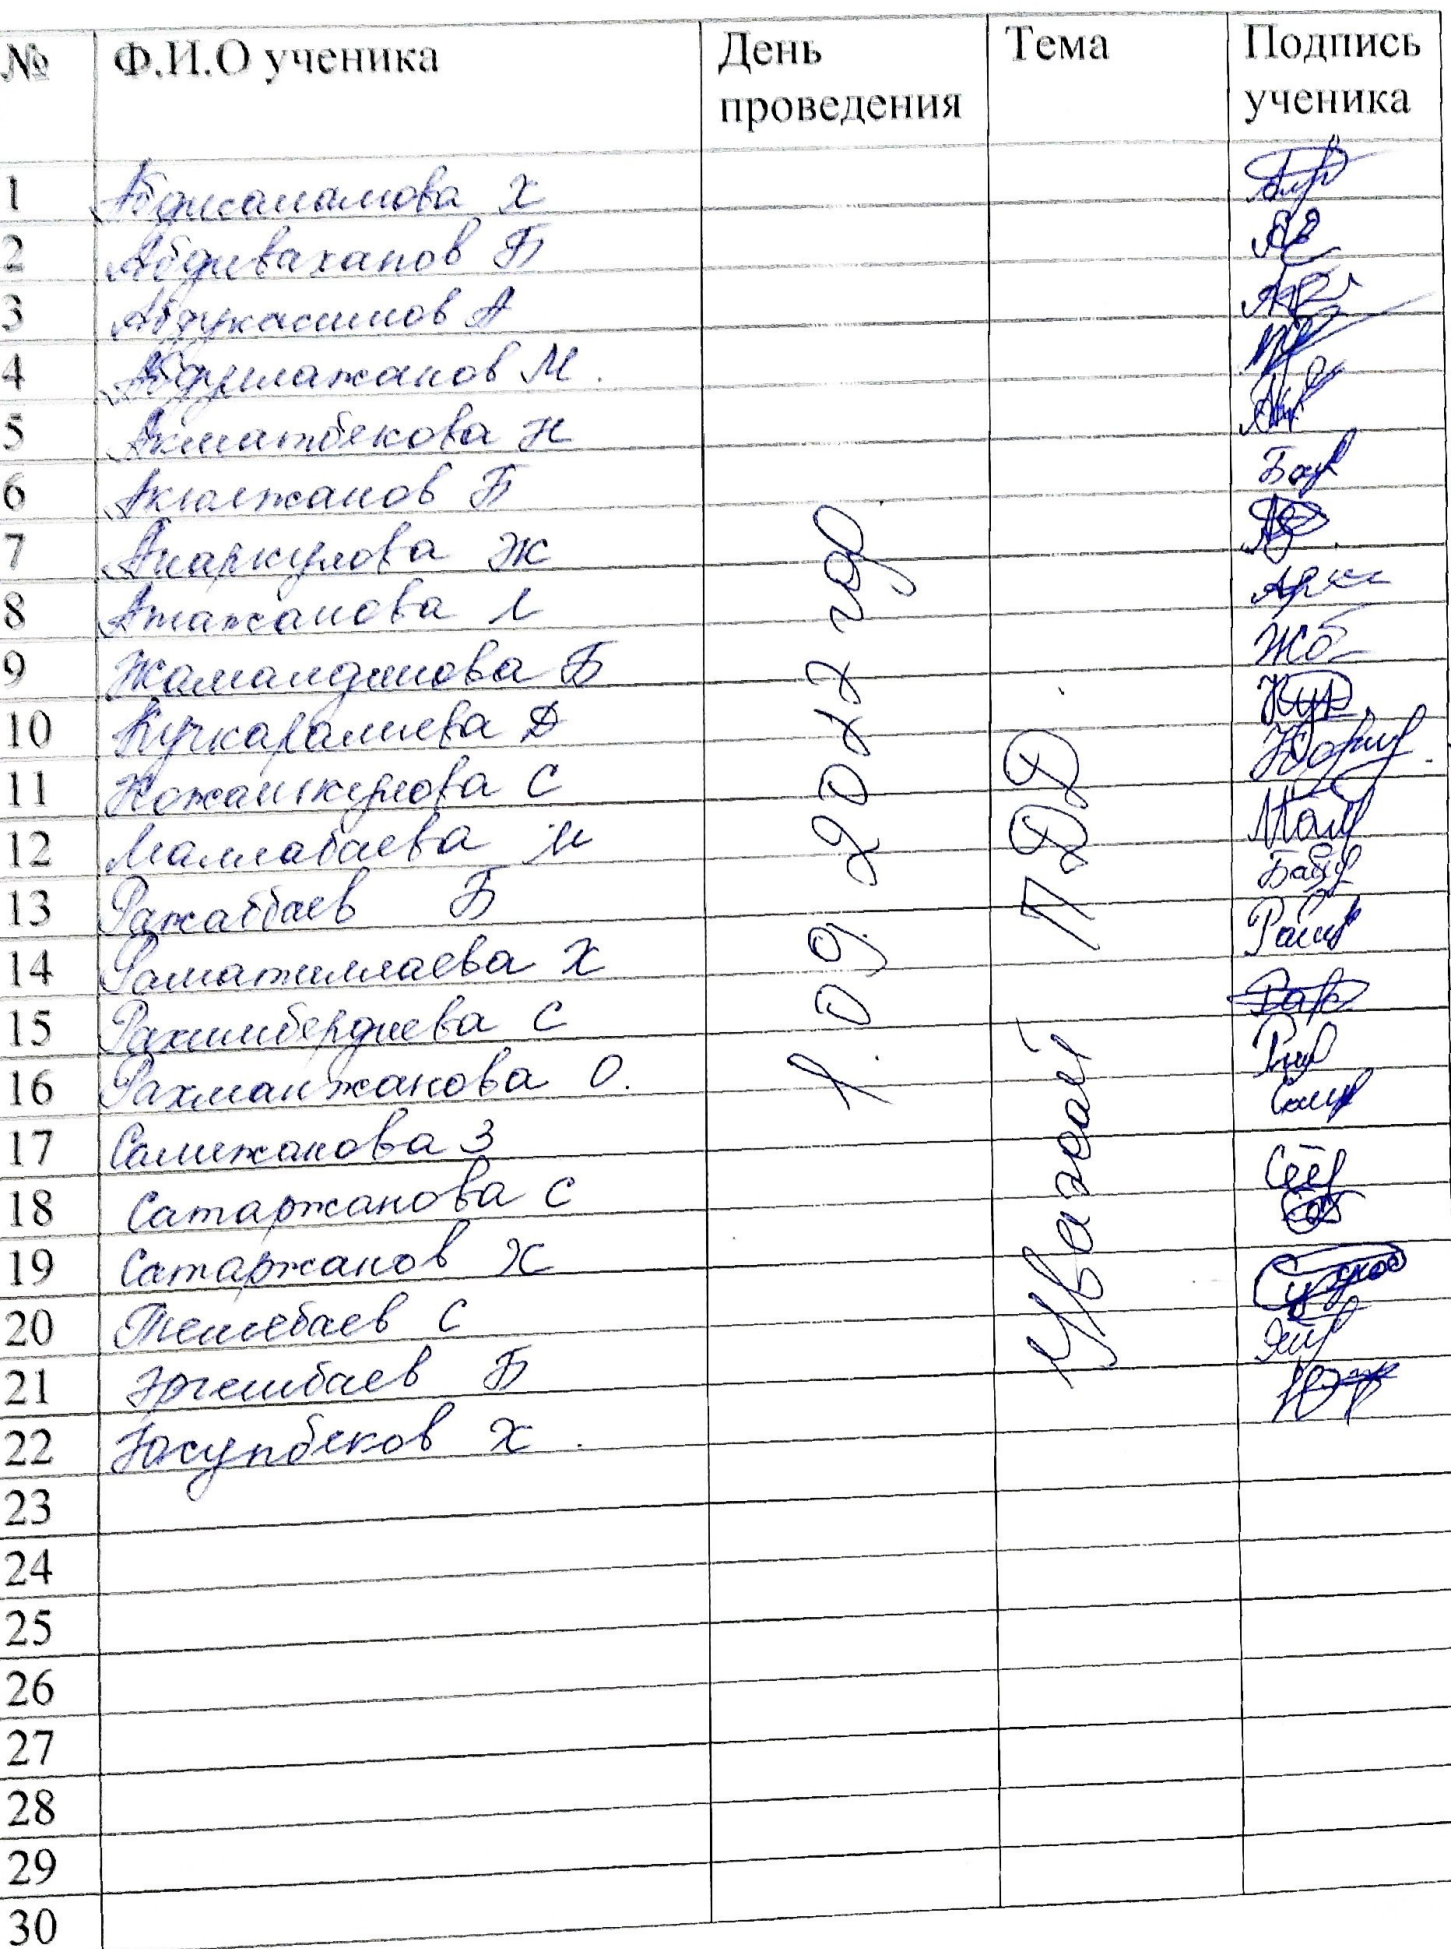 № Ф.И.О ученика День проведения Тема Подпись ученика
1 Абдисаламова Х
2 Абдивахапов Б
3 Абдукасимов А
4 Абдулажанов М.
5 Акматбекова Н
6 Акюлжанов Б
7 Анаркулова Ж
8 Атажанова Л
9 Жамалдинова Б
10 Кучкаралиева Д
11 Кожамкулова С
12 Маллабаева М
13 Ражаббаев Б
14 Раматиллаева Х
15 Рахимбердиева С
16 Рахманжанова О.
17 Салижанова З
18 Сатаржанова С
19 Сатаржанов Ж
20 Тешебаев С
21 Эргешбаев Б
22 Юсупбеков Х.
23
24
25
26
27
28
29
30
1.09.2022 год.
Уважай ПДД